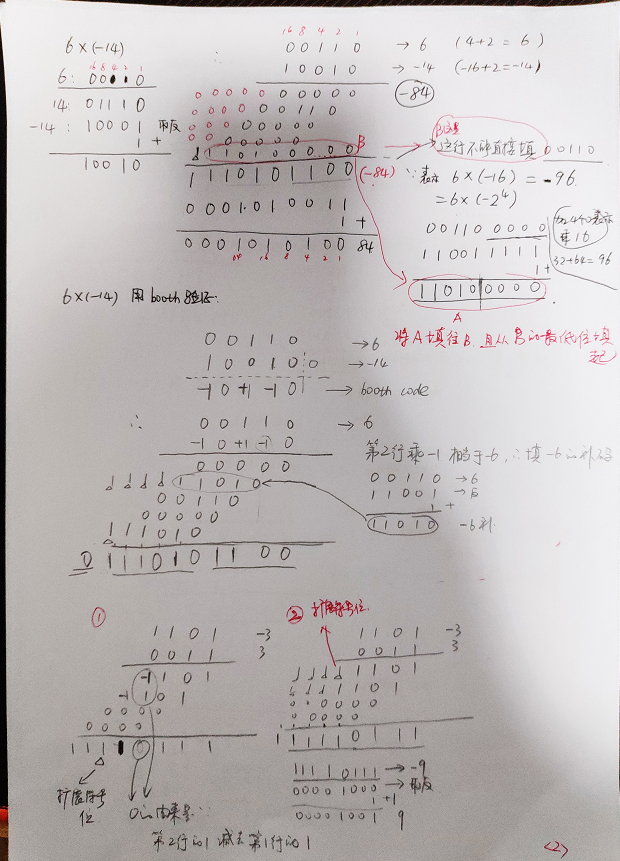 6×(-14)
16 8 4 2 1
6: 00110
14: 01110
-14: 10001 取反
1 +
10010
16 8 4 2 1
0 0 1 1 0 → 6 (4+2 = 6)
1 0 0 1 0 → -14 (-16+2=-14)
0 0 0 0 0 0 0 0 0 -84
0 0 0 0 0 0 1 1 0
0 0 0 0 0 0 0
0 0 0 0 0 0
1 1 0 1 0 0 0 0 0 B
1 1 1 0 1 0 1 1 0 0 (-84)
0 0 0 1 0 1 0 0 1 1
1 +
0 0 0 1 0 1 0 1 0 0 84
64 16 8 4 2 1
00110
∵ 表示 6×(-16) = -96
=6×(-2⁴)
00110 0000
11001 1111
1+
11010 0000
A
32+64=96
将A填往B,且从B的最低位填起
6×(-14) 用booth验证:
0 0 1 1 0 → 6
1 0 0 1 0 0 → -14
-1 0 +1 -1 0 → booth code
∴ 0 0 1 1 0 → 6
-1 0 +1 -1 0
0 0 0 0 0
1 1 1 1 1 1 0 1 0
0 0 1 1 0
0 0 0 0 0
1 1 1 0 1 0
0 1 1 1 0 1 0 1 1 0 0
第2行乘-1 相当于-6, ∴填-6的补码
0 0 1 1 0 → 6
1 1 0 0 1 → 反
1 +
1 1 0 1 0 -6补
①
1 1 0 1 -3
0 0 1 1 3
-1 1 0 1
-1 1 0 1
0 0 0 0
0 0 0 0
1 1 1 1 0 1 1 1
扩展符号位
0的由来是:
第2行的1 减去 第1行的1
② 扩展符号位.
1 1 0 1 -3
0 0 1 1 3
1 1 1 1 1 1 0 1
1 1 1 1 1 0 1
0 0 0 0 0 0
0 0 0 0 0
1 1 1 1 0 1 1 1
1111 0111 → -9
0000 1000 → 取反
1 +1
0000 1001 9
<2>